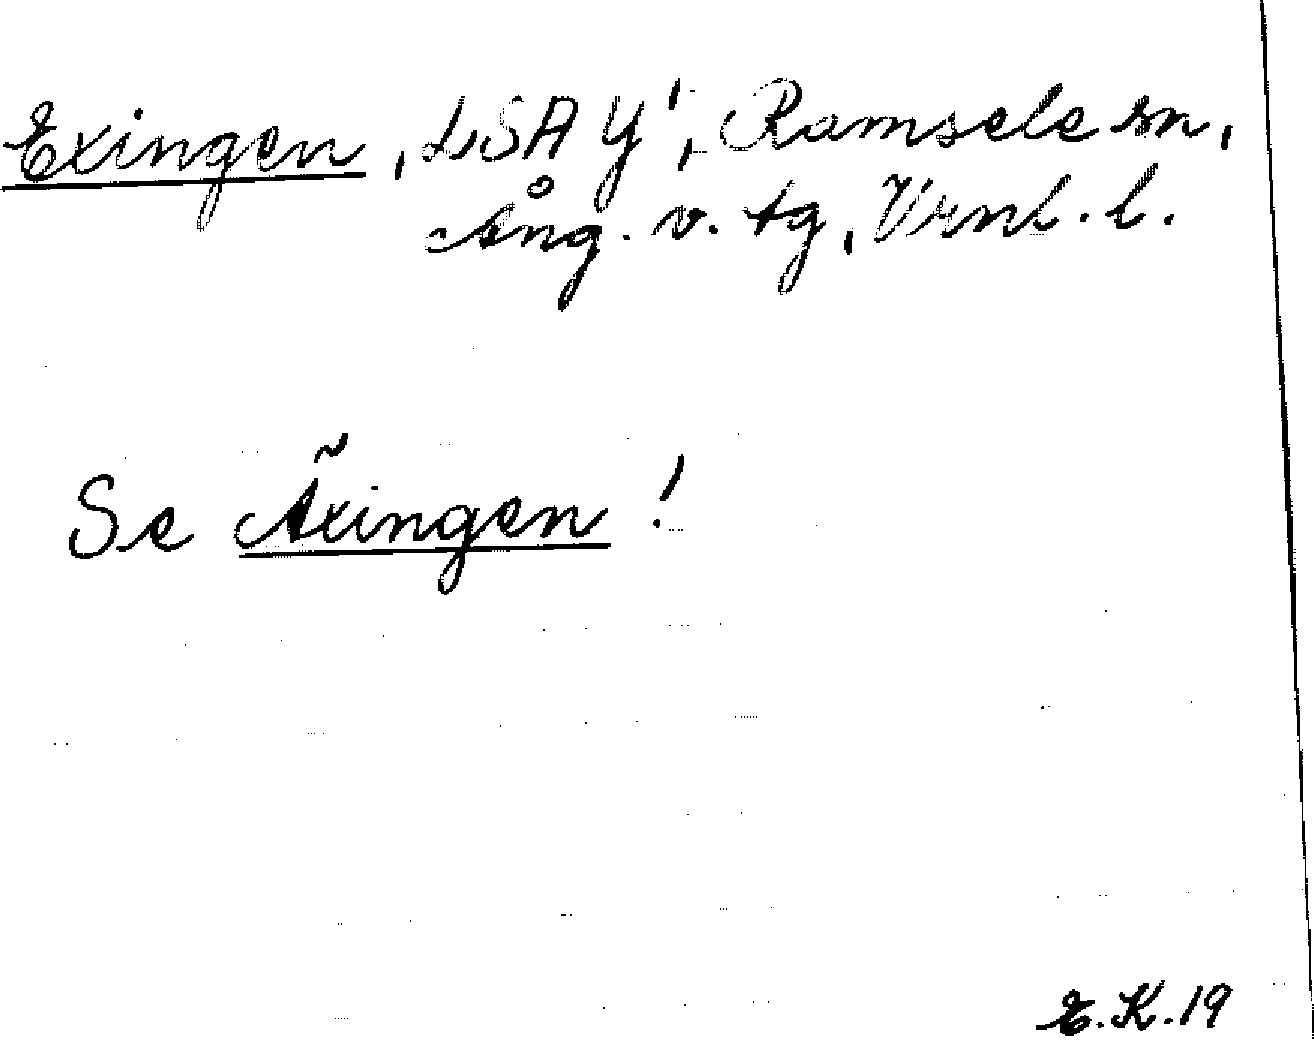 Exingen, LSA Y', Ramsele sn,
Ång. v. tg, Vrnl. l.
Se Äxingen!
E.K.19